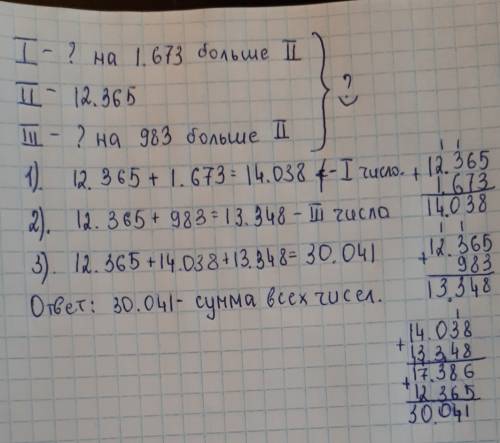 I - ? на 1.673 больше II
II - 12.365
III - ? на 983 больше II
?
1). 12.365 + 1.673 = 14.038 - I число.
2). 12.365 + 983 = 13.348 - III число
3). 12.365 + 14.038 + 13.348 = 30.041
Ответ: 30.041 - сумма всех чисел.
1 1
+ 12.365
1.673
14.038
1 1
+ 12.365
983
13.348
1
+ 14.038
13.348
17.386
+ 12.365
30.041